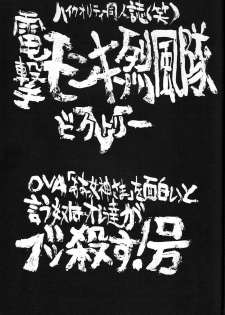 ハイクオリティ同人誌(笑)
電撃
モンキー烈風隊
ビクトリー
OVA「女神さま」を面白いと
言う奴はオレ達が
ブッ殺す!号